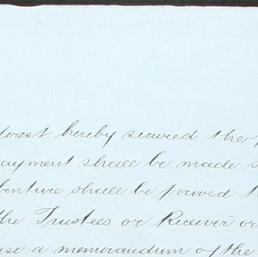 terest hereby secured the
ayment shall be made
benture shall be proved
the Trustees or Receiver or
use a memorandum of the